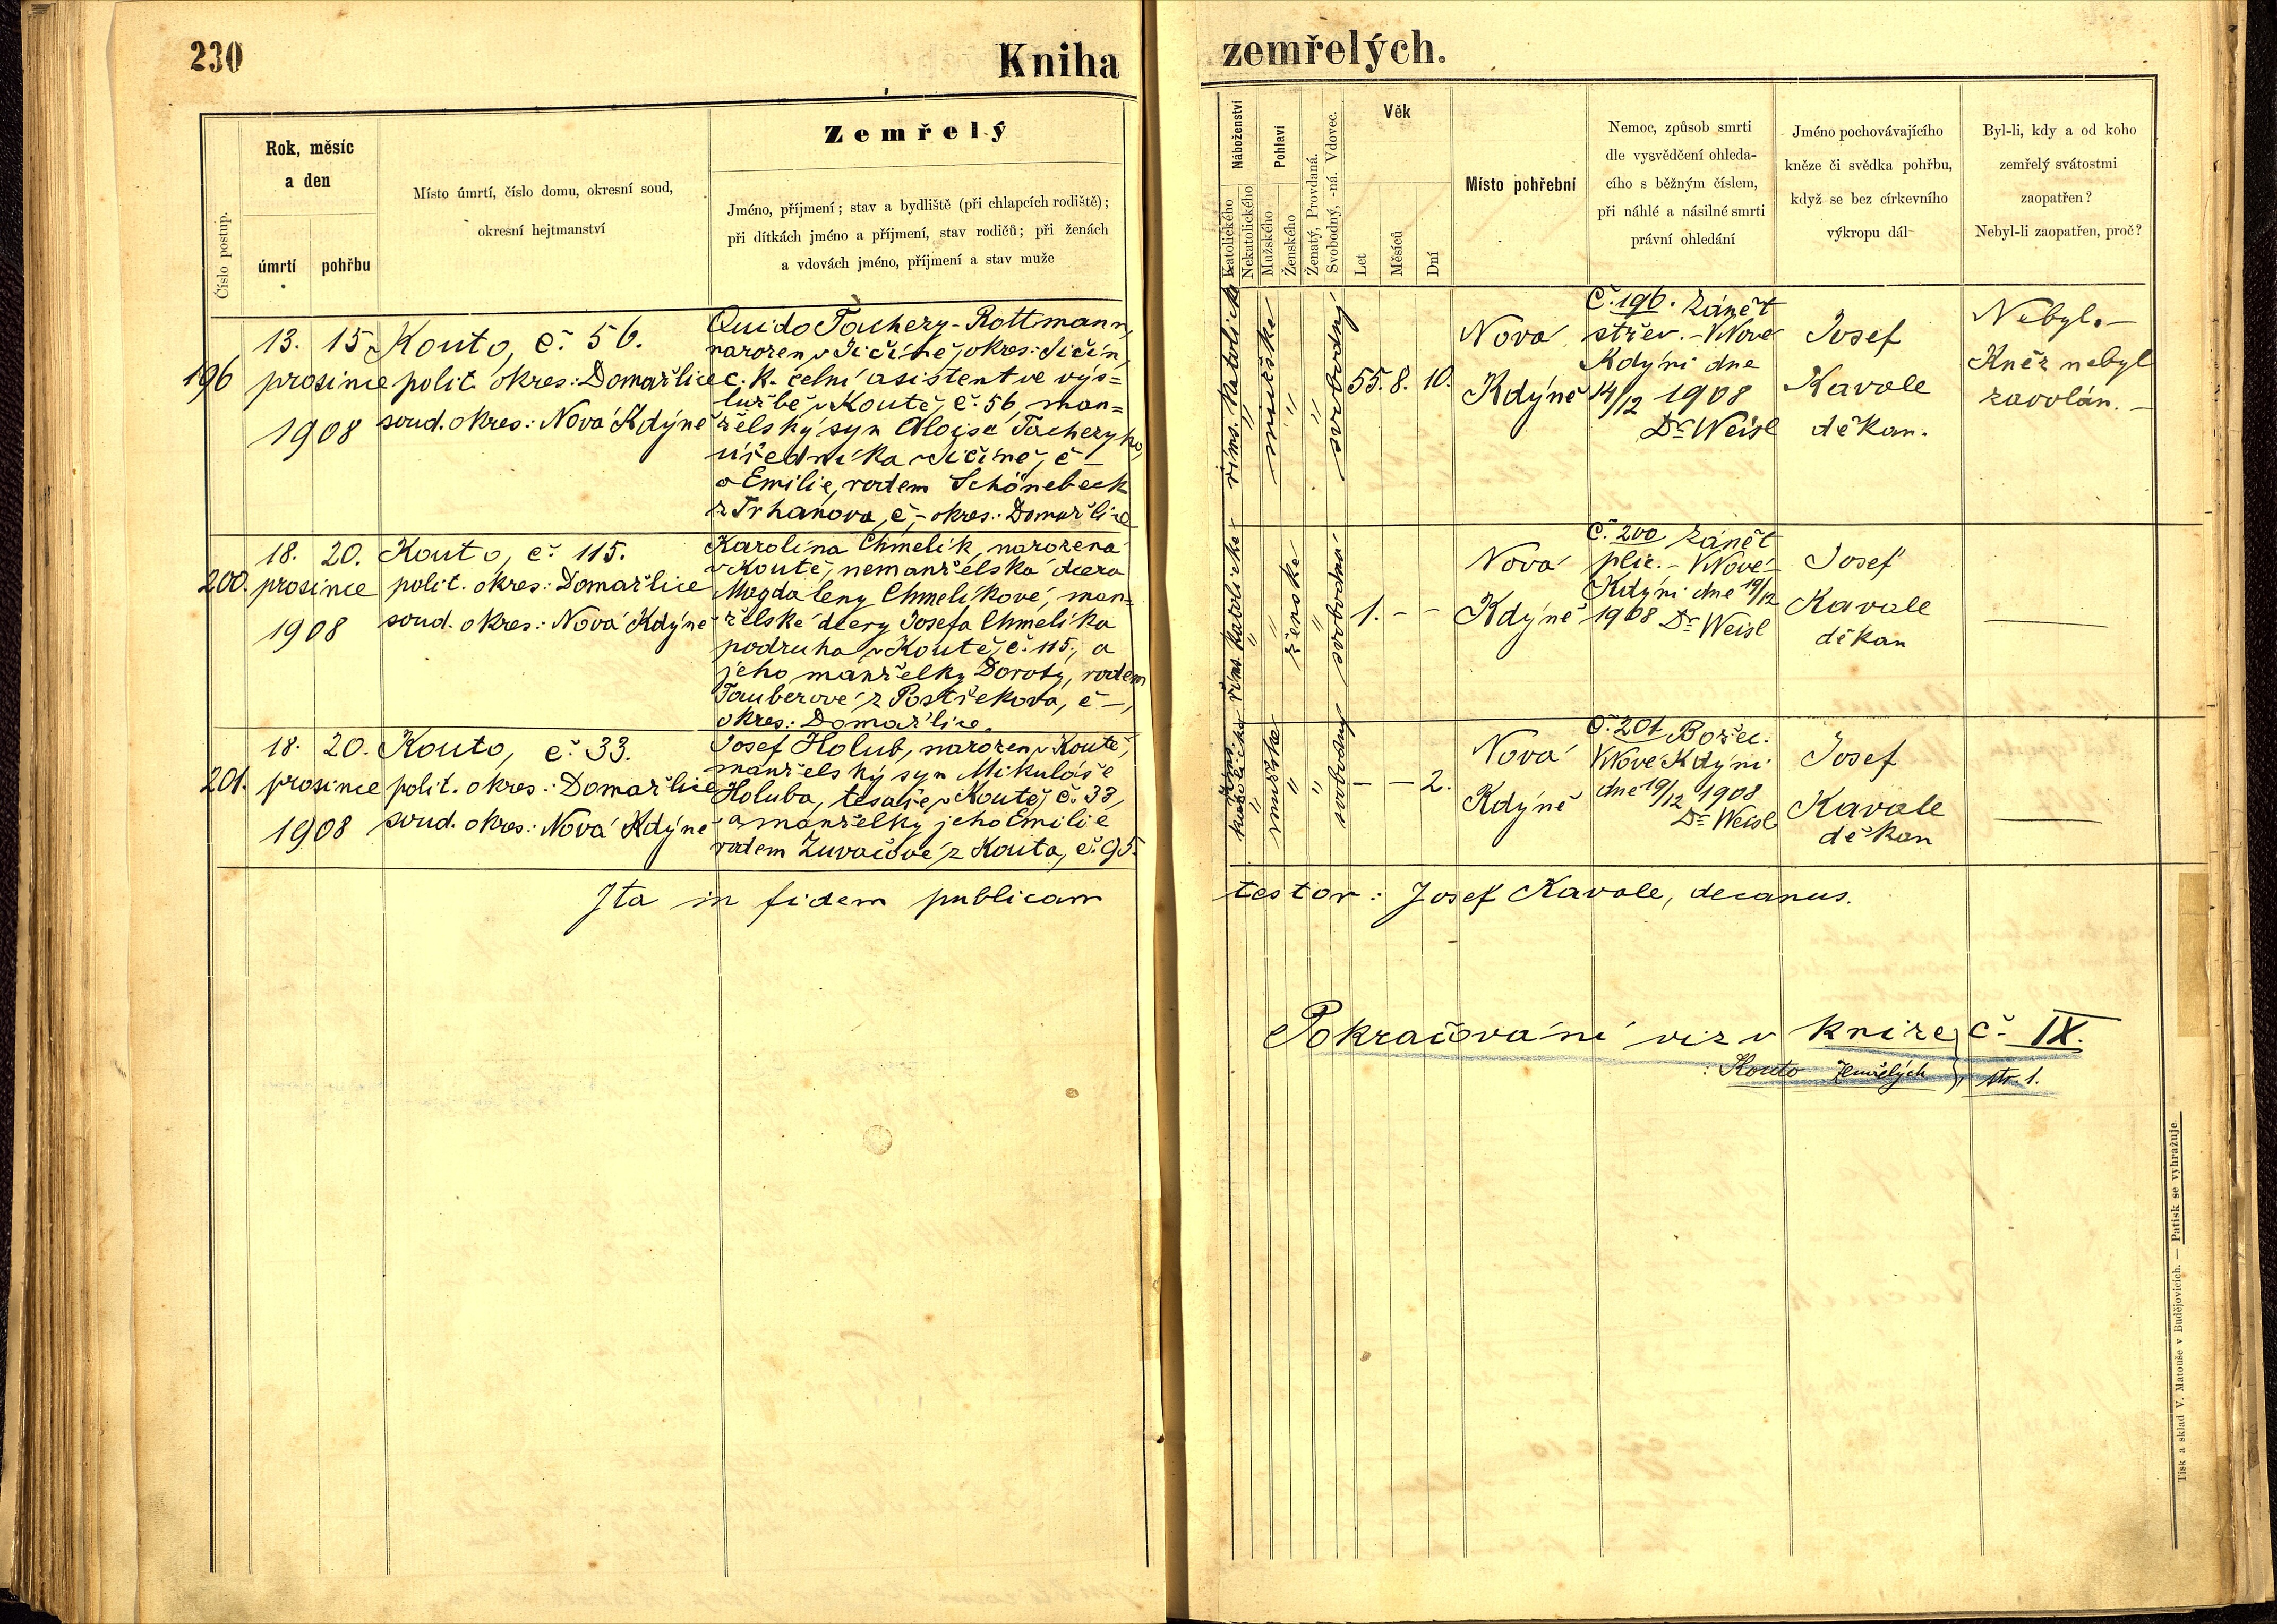 230
Kniha
zemřelých.
Číslo postup.
Rok, měsíc
a den
úmrtí
pohřbu
Místo úmrtí, číslo domu, okresní soud,
okresní hejtmanství
Zemřelý
Jméno, příjmení; stav a bydliště (při chlapcích rodiště);
při dítkách jméno a příjmení, stav rodičů; při ženách
a vdovách jméno, příjmení a stav muže
Náboženství
Katolického
Nekatolického
Pohlaví
Mužského
Ženského
Ženatý, Provdaná.
Svobodný, -ná. Vdovec.
Věk
Let
Měsíců
Dní
Místo pohřební
Nemoc, způsob smrti
dle vysvědčení ohleda-
cího s běžným číslem,
při náhlé a násilné smrti
právní ohledání
Jméno pochovávajícího
kněze či svědka pohřbu,
když se bez církevního
výkropu dál
Byl-li, kdy a od koho
zemřelý svátostmi
zaopatřen?
Nebyl-li zaopatřen, proč?
196
13. 15.
prosince
1908
Kouto, č. 56.
polit. okres: Domažlice
soud. okres: Nová Kdýně
Quido Tachezy-Rottmann,
narozen v Jičíně, okres: Jičín,
c. k. celní asistent ve výs=
lužbě v Koutě, č. 56, man=
želský syn Aloise Tachezyho,
úředníka v Jičíně, č –
a Emilie, rodem Schönebeck
z Trhanova, č – okres: Domažlice
řims. katolické
"
mužské
"
"
svobodný
55. 8. 10.
Nová
Kdýně
č. 196. Zánět
střev. - V Nové
Kdýni dne
14/12 1908
Dr Weisl
Josef
Kavale
děkan.
Nebyl. –
Kněz nebyl
zavolán. –
200.
18. 20.
prosince
1908
Kouto, č. 115.
polit. okres: Domažlice
soud. okres: Nová Kdýně
Karolína Chmelík, narozena
v Koutě, nemanželská dcera
Magdaleny Chmelíkové, man=
želské dcery Josefa Chmelíka
podruha v Koutě, č. 115, a
jeho manželky Doroty, rodem
Tauberové z Postřekova, č –,
okres: Domažlice.
řims. katolické
"
"
ženské
"
svobodná
1. – –
Nová
Kdýně
č. 200 Zánět
plic. - V Nové
Kdýni dne 19/12
1908 Dr Weisl
Josef
Kavale
děkan
201.
18. 20.
prosince
1908
Kouto, č. 33.
polit. okres: Domažlice
soud. okres: Nová Kdýně
Josef Holub, narozen v Koutě,
manželský syn Mikuláše
Holuba, tesaře v Koutě, č. 33,
a manželky jeho Emilie
rodem Zuvačové z Kouta, č. 95.
řims.
katolické
"
mužské
"
"
svobodný
– – 2.
Nová
Kdýně
č. 201 Božec.
V Nové Kdýni
dne 19/12 1908
Dr Weisl
Josef
Kavale
děkan
Ita in fidem publicam
testor: Josef Kavale, decanus.
Pokračování viz v knize č. IX.
: Kouto zemřelých }, str. 1.
Tisk a sklad V. Matouše v Budějovicích. — Patisk se vyhražuje.